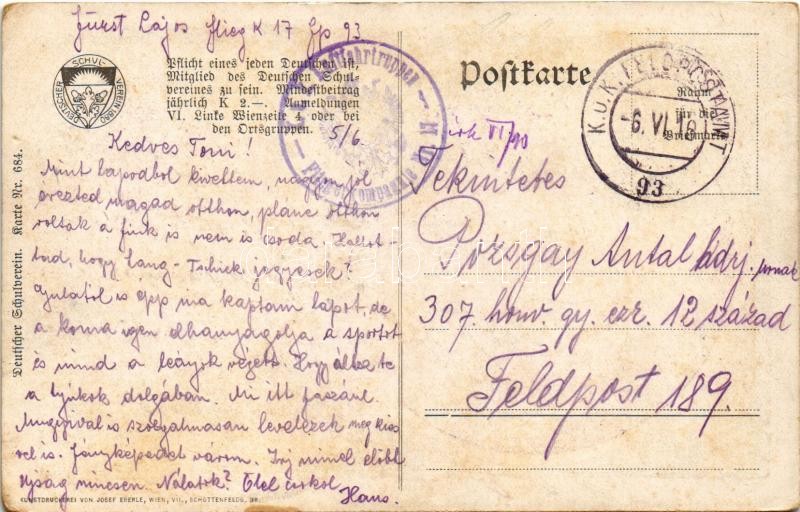 Fürst Lajos Flieg K 17 Fp 93
SCHUL-
DEUTSCHER
VEREIN
Pflicht eines jeden Deutschen ist,
Mitglied des Deutschen Schul-
vereines zu sein. Mindestbeitrag
jährlich K 2.—. Anmeldungen
VI. Linke Wienzeile 4 oder bei
den Ortsgruppen.
5/6.
Kedves Toni!
Mint lapodból kivettem, nagyon jól
érezted magad otthon, pláne otthon
voltak a fiúk is nem is csoda. Hallot-
tad, hogy Lang - jegyesek?
Gyulától is épp ma kaptam lapot, de
a koma igen elhanyagolja a sportot
és mind a leányok végett. Hogy állsz te
a tyúkok dolgában. Mi itt
is szorgalmasan levelezek meg
is. Fényképedet várom. Írj minél előbb
Ujság nincsen. Nálatok? Ölel csókol
Hans.
Deutscher Schulverein. Karte Nr. 684.
KUNSTDRUCKEREI VON JOSEF EBERLE, WIEN, VII., SCHOTTENFELDG.
Luftfahrtruppen
Fliegerkompagnie
Postkarte
Raum
für die
Briefmarke
K.u.K. FELDPOSTAMT
-6.VI.18
93
Tekintetes
Pozsgay Antal hdrj. urnak
307. honv. gy. ezr. 12 század
Feldpost 189.